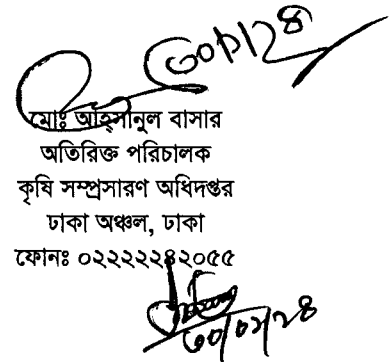 ৩০/১/২৪
মোঃ আহ্সানুল বাসার
অতিরিক্ত পরিচালক
কৃষি সম্প্রসারণ অধিদপ্তর
ঢাকা অঞ্চল, ঢাকা
ফোনঃ ০২২২২২৪২০৫৫
৩০/০১/২৪